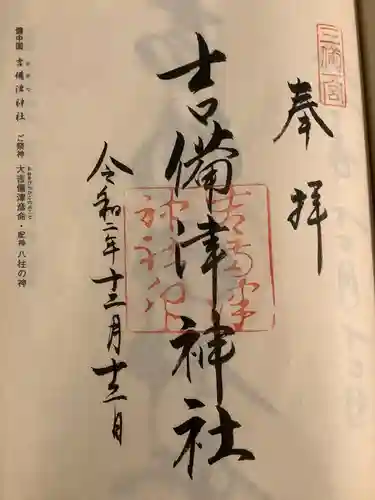 三備一宮
奉拝
吉備津神社
吉備津
神社印
令和二年十二月十三日
備中国 吉備津神社 ご祭神 大吉備津彦命・配神 八柱の神